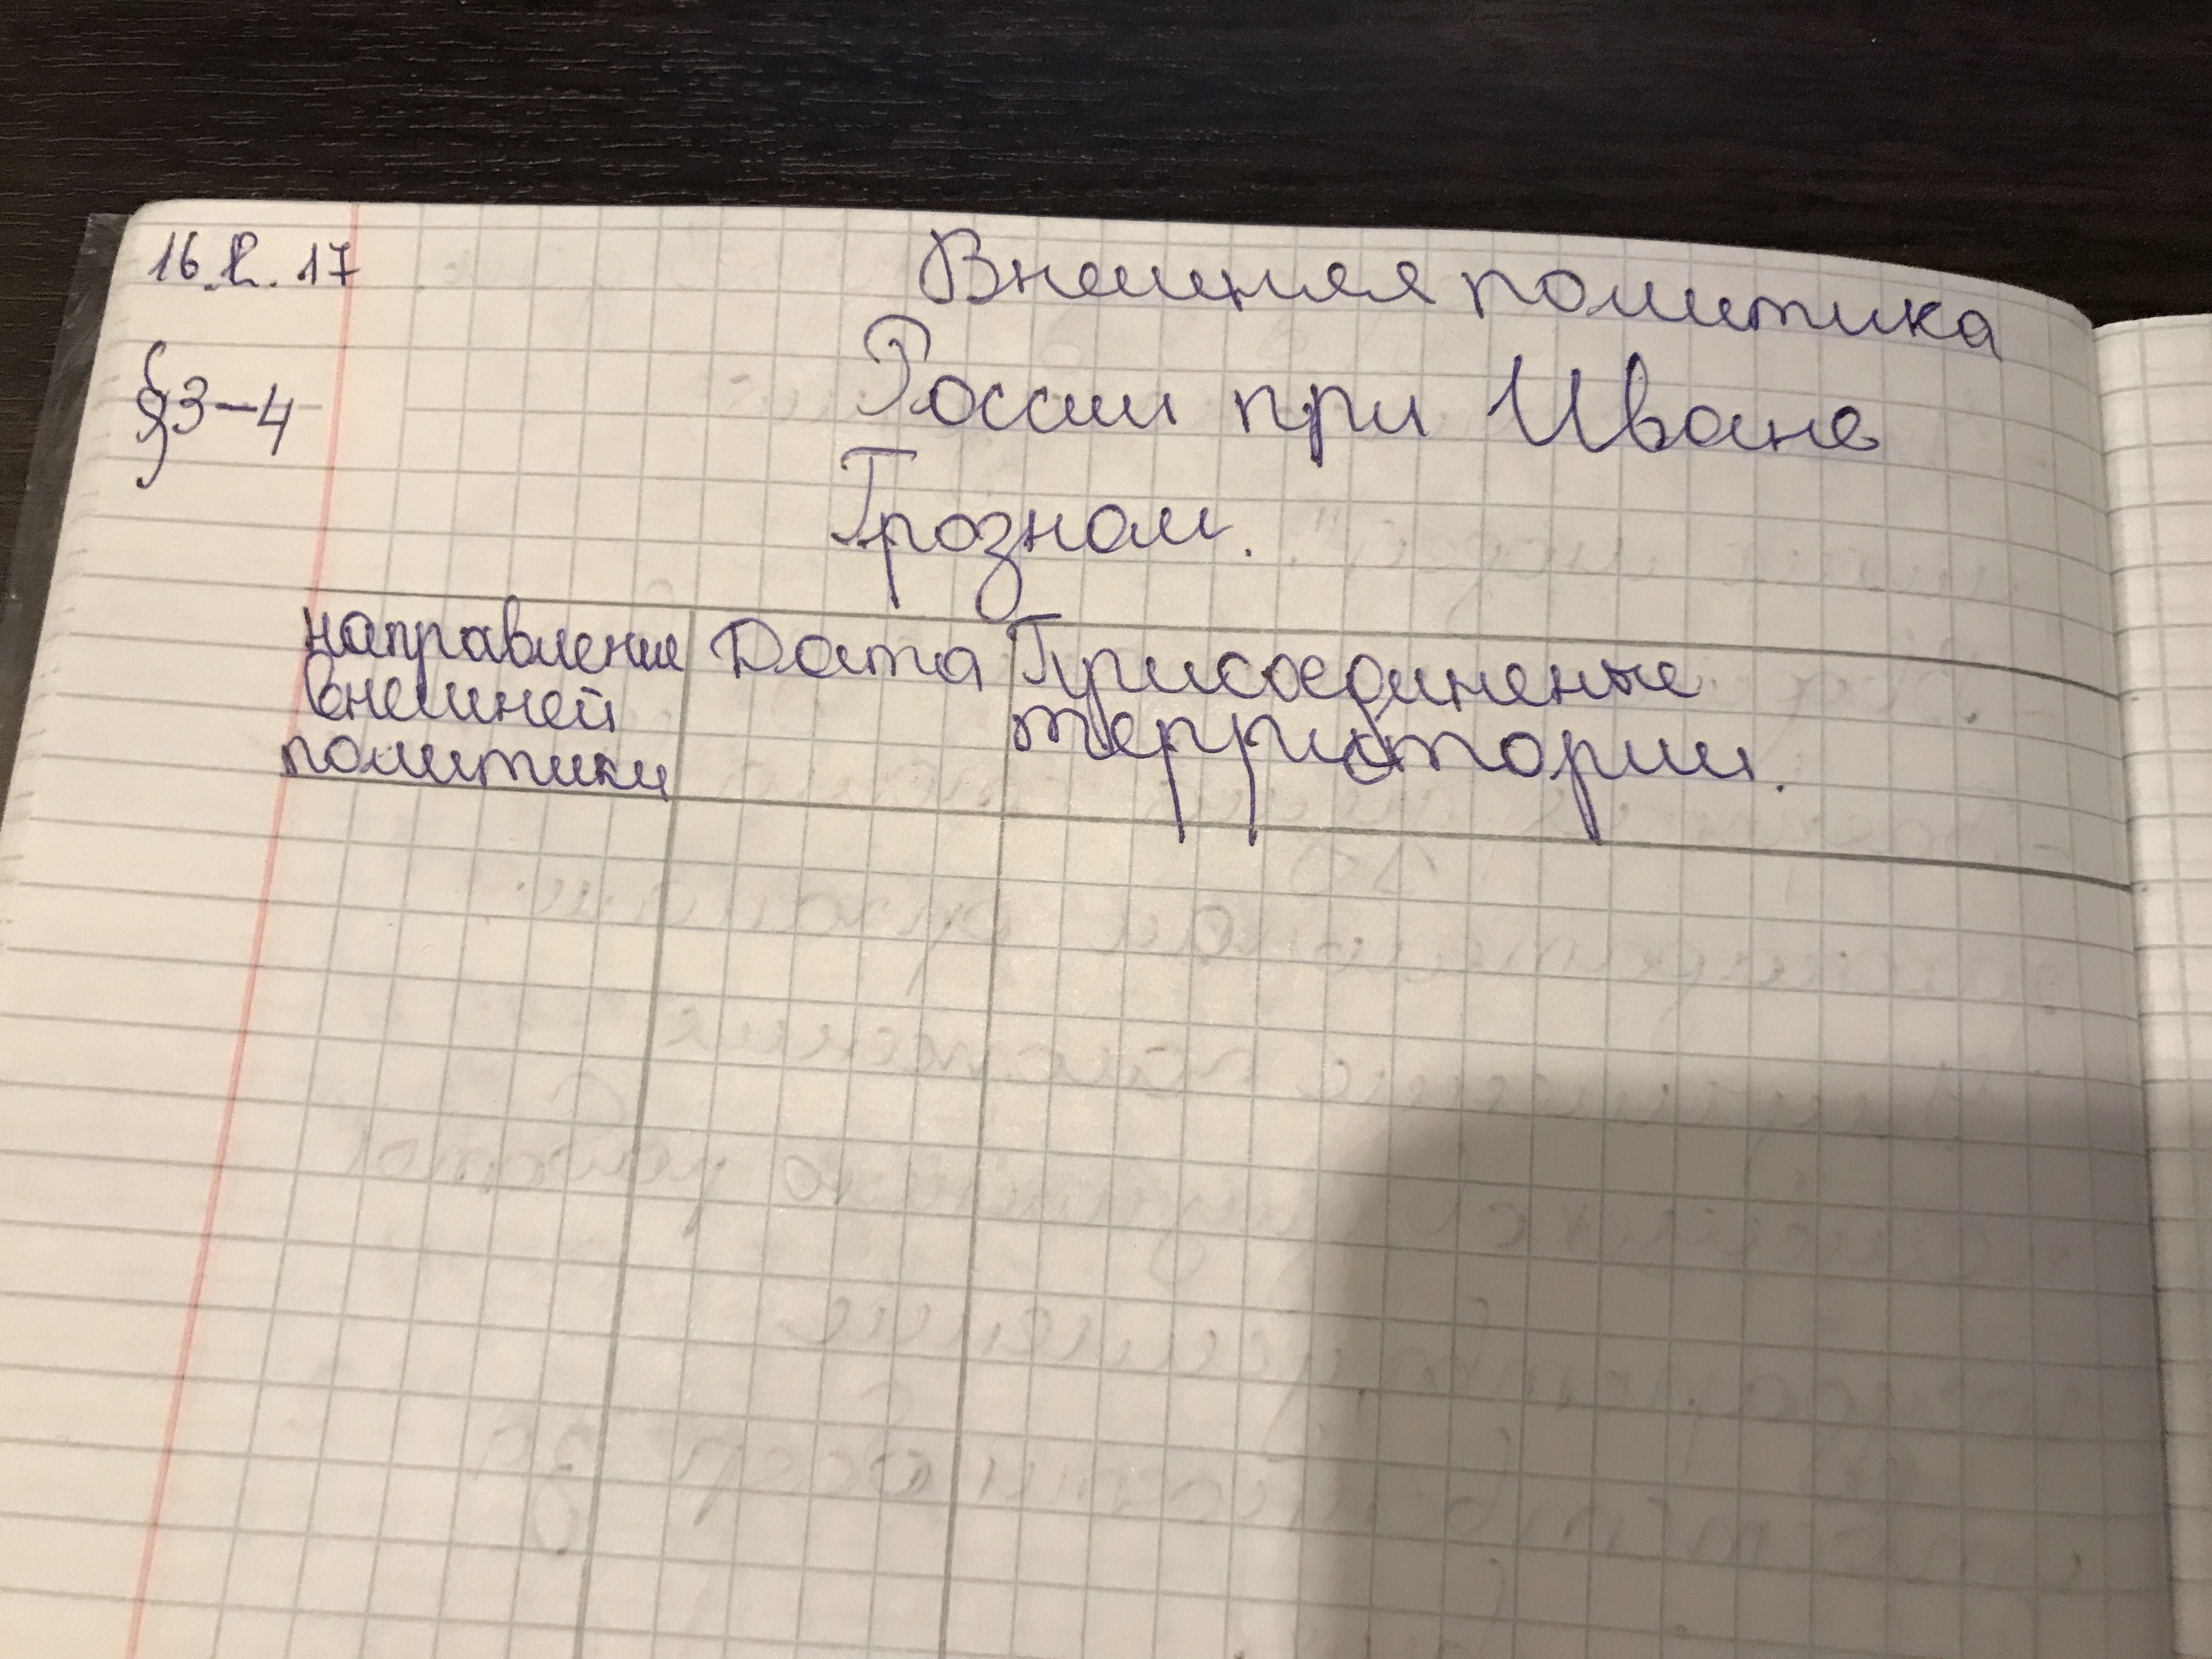 16.12.17
Внешняя политика
§3-4
России при Иване
Грозном.
направление
внешней
политики
Дата
Присоединеные
территории.